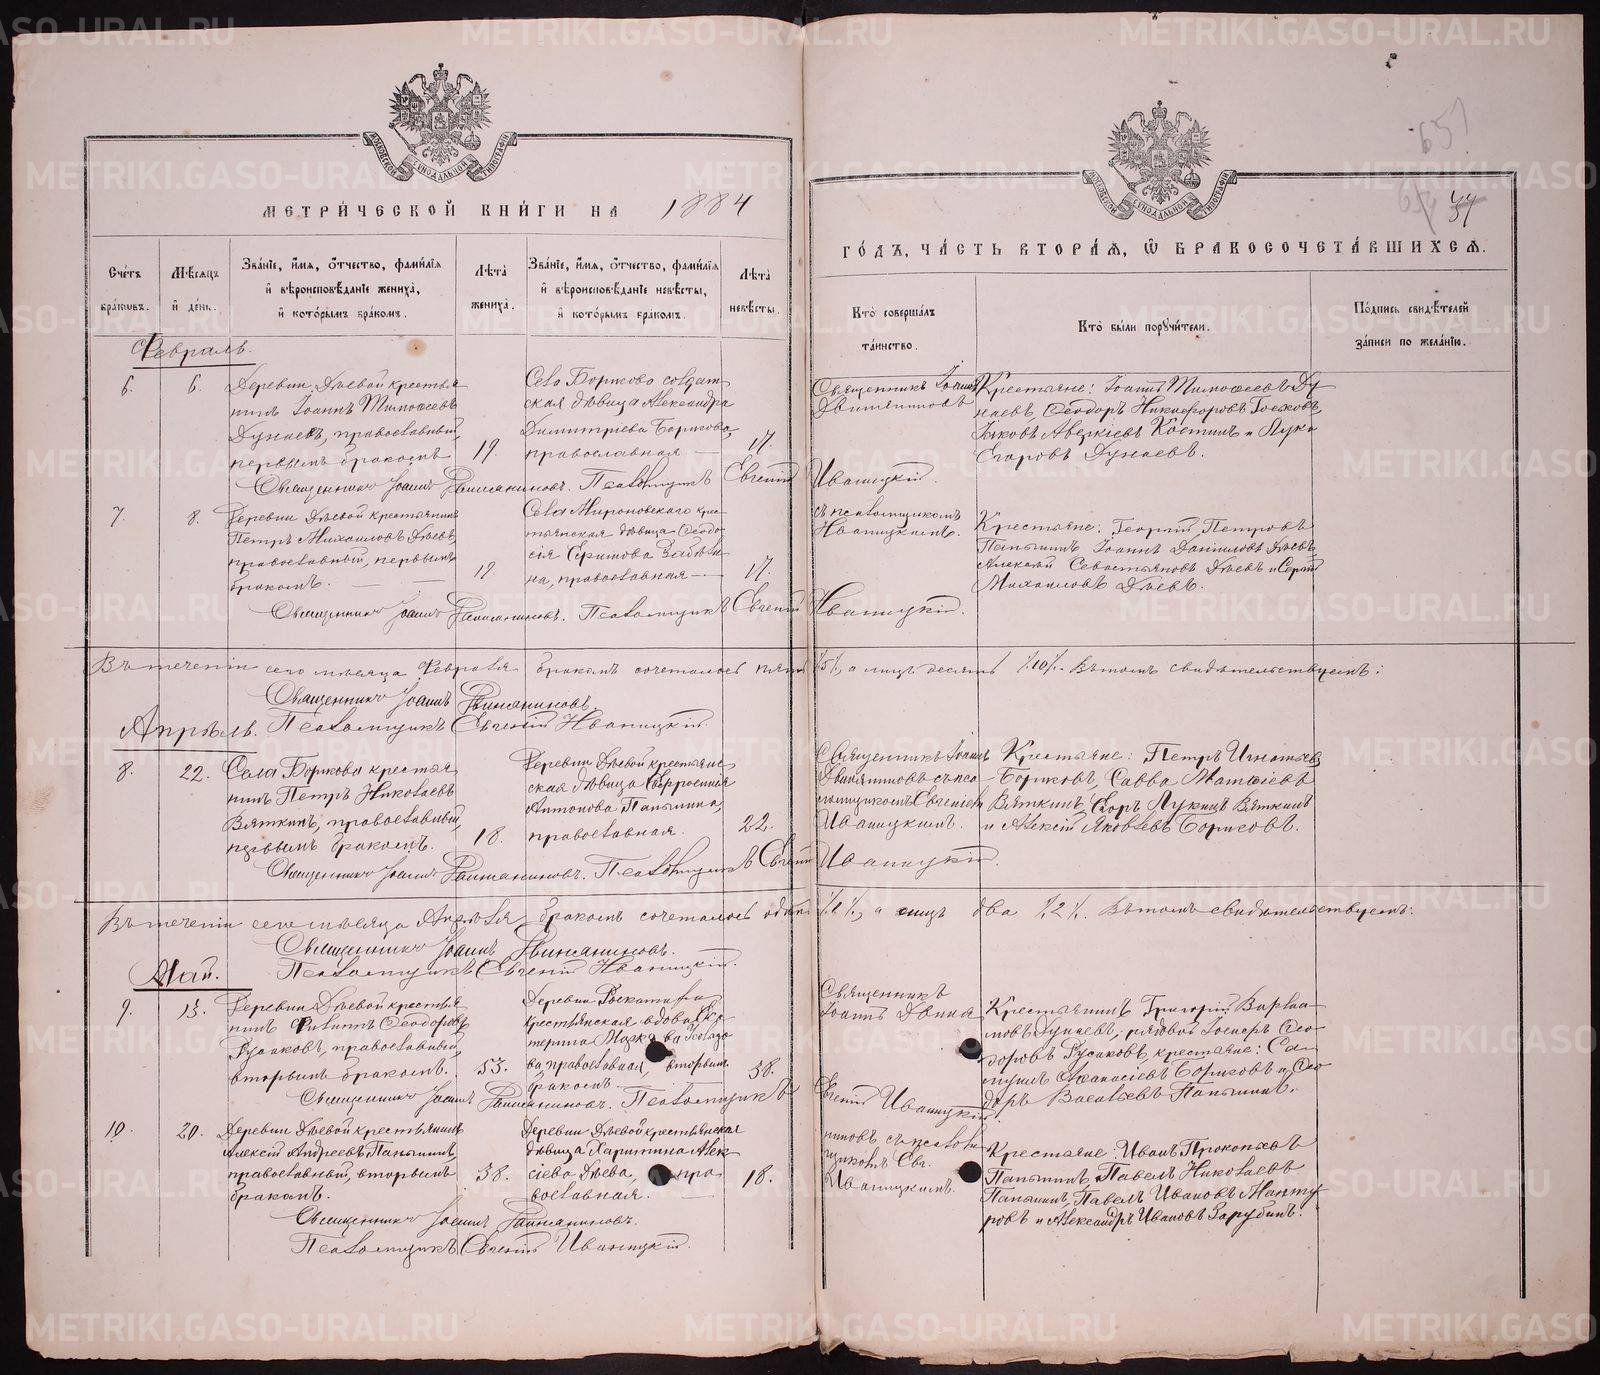 МЕТРИЧЕСКОЙ КНИГИ НА 1884
ГОДЪ, ЧАСТЬ ВТОРАЯ, Ѿ БРАКОСОЧЕТАВШИХСЯ.
Счетъ браковъ.
Мѣсяцъ и день.
Званіе, имя, отчество, фамилія и вѣроисповѣданіе жениха, и которымъ бракомъ.
Лѣта жениха.
Званіе, имя, отчество, фамилія и вѣроисповѣданіе невѣсты, и которымъ бракомъ.
Лѣта невѣсты.
Кто совершалъ таинство.
Кто были поручители.
Подпись свидѣтелей записи по желанію.
Февраль.
6.
6.
Деревни Дѣевой крестья
нинъ Іоаннъ Тимоѳеевъ
Дунаевъ, православный,
первымъ бракомъ
19.
Село Борисово солдат
ская дѣвица Александра
Димитріева Борисова,
православная
17.
Священникъ Іоаннъ
Крестьяне: Іоаннъ Тимоѳеевъ Ду
наевъ, Ѳеодоръ Никифоровъ
Іаковъ Аверкіевъ Костинъ и Лука
Егоровъ Дунаевъ.
Священникъ Іоаннъ Двиняниновъ. Псаломщикъ Евгеній Иваницкій.
7.
8.
Деревни Дѣевой крестьянинъ
Петръ Михаиловъ Дѣевъ
православный, первымъ
бракомъ.
19
Села Мироновскаго крес
тьянская дѣвица Ѳеодо
сія Ефимова
на, православная
17.
съ псаломщикомъ
Иваницкимъ.
Крестьяне: Георгій Петровъ
Панъшинъ Іоаннъ Даніиловъ Дѣевъ,
Алексѣй Севастьяновъ Дѣевъ и Сергій
Михаиловъ Дѣевъ.
Священникъ Іоаннъ Двиняниновъ. Псаломщикъ Евгеній Иваницкій.
Въ теченіи сего мѣсяца Февраля бракомъ сочеталось пять /5/, а лицъ десять /10/. Въ томъ свидѣтельствуемъ:
Священникъ Іоаннъ Двиняниновъ.
Псаломщикъ Евгеній Иваницкій
Апрѣль.
8.
22.
Села Борисова крестья
нинъ Петръ Николаевъ
Вяткинъ, православный,
первымъ бракомъ.
18.
Деревни Дѣевой крестьянс
кая дѣвица Евфросинія
Антонова Паньшина,
православная.
22.
Священникъ Іоаннъ
Двиняниновъ съ пса
ломщикомъ Евгеніемъ
Иваницкимъ.
Крестьяне: Петръ Игнатьевъ
Борисовъ, Савва Матѳіевъ
Вяткинъ, Егоръ Лукинъ Вяткинъ
и Алексій Яковлевъ Борисовъ.
Священникъ Іоаннъ Двиняниновъ. Псаломщикъ Евгеній Иваницкій.
Въ теченіи сего мѣсяца Апрѣля бракомъ сочеталось одинъ /1/, а лицъ два /2/. Въ томъ свидѣтельствуемъ:
Священникъ Іоаннъ Двиняниновъ.
Псаломщикъ Евгеній Иваницкій.
Май.
9.
13.
Деревни Дѣевой крестья
нинъ Филиппъ Ѳеодоровъ
Русаковъ, православный,
вторымъ бракомъ.
53.
Деревни
крестьянская вдова Ека
терина
ва православная, вторымъ
бракомъ.
38.
Священникъ
Іоаннъ Двиня
Крестьянинъ Григорій Варлаа
мовъ Дунаевъ, рядовой Іосифъ Ѳео
доровъ Русаковъ, крестьяне: Са
муилъ Аѳанасіевъ Борисовъ и Ѳео
доръ Васильевъ Паньшинъ.
Священникъ Іоаннъ Двиняниновъ. Псаломщикъ Евгеній Иваницкій
10.
20.
Деревни Дѣевой крестьянинъ
Алексій Андреевъ Паньшинъ,
православный, вторымъ
бракомъ.
38.
Деревни Дѣевой крестьянская
дѣвица Харитина Алек
сіева Дѣева, пра
вославная.
18.
ниновъ съ псалом
щикомъ Евг.
Иваницкимъ.
Крестьяне: Иванъ Прокопьевъ
Паньшинъ, Павелъ Николаевъ
Паньшинъ, Павелъ Ивановъ Манту
ровъ и Александръ Ивановъ Зарубинъ.
Священникъ Іоаннъ Двиняниновъ.
Псаломщикъ Евгеній Иваницкій.
METRIKI.GASO-URAL.RU